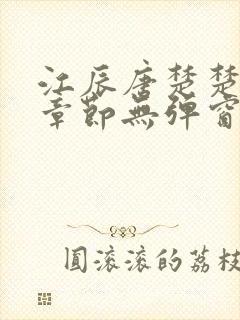 江辰唐楚楚
章節無彈窗
圓滾滾的荔枝